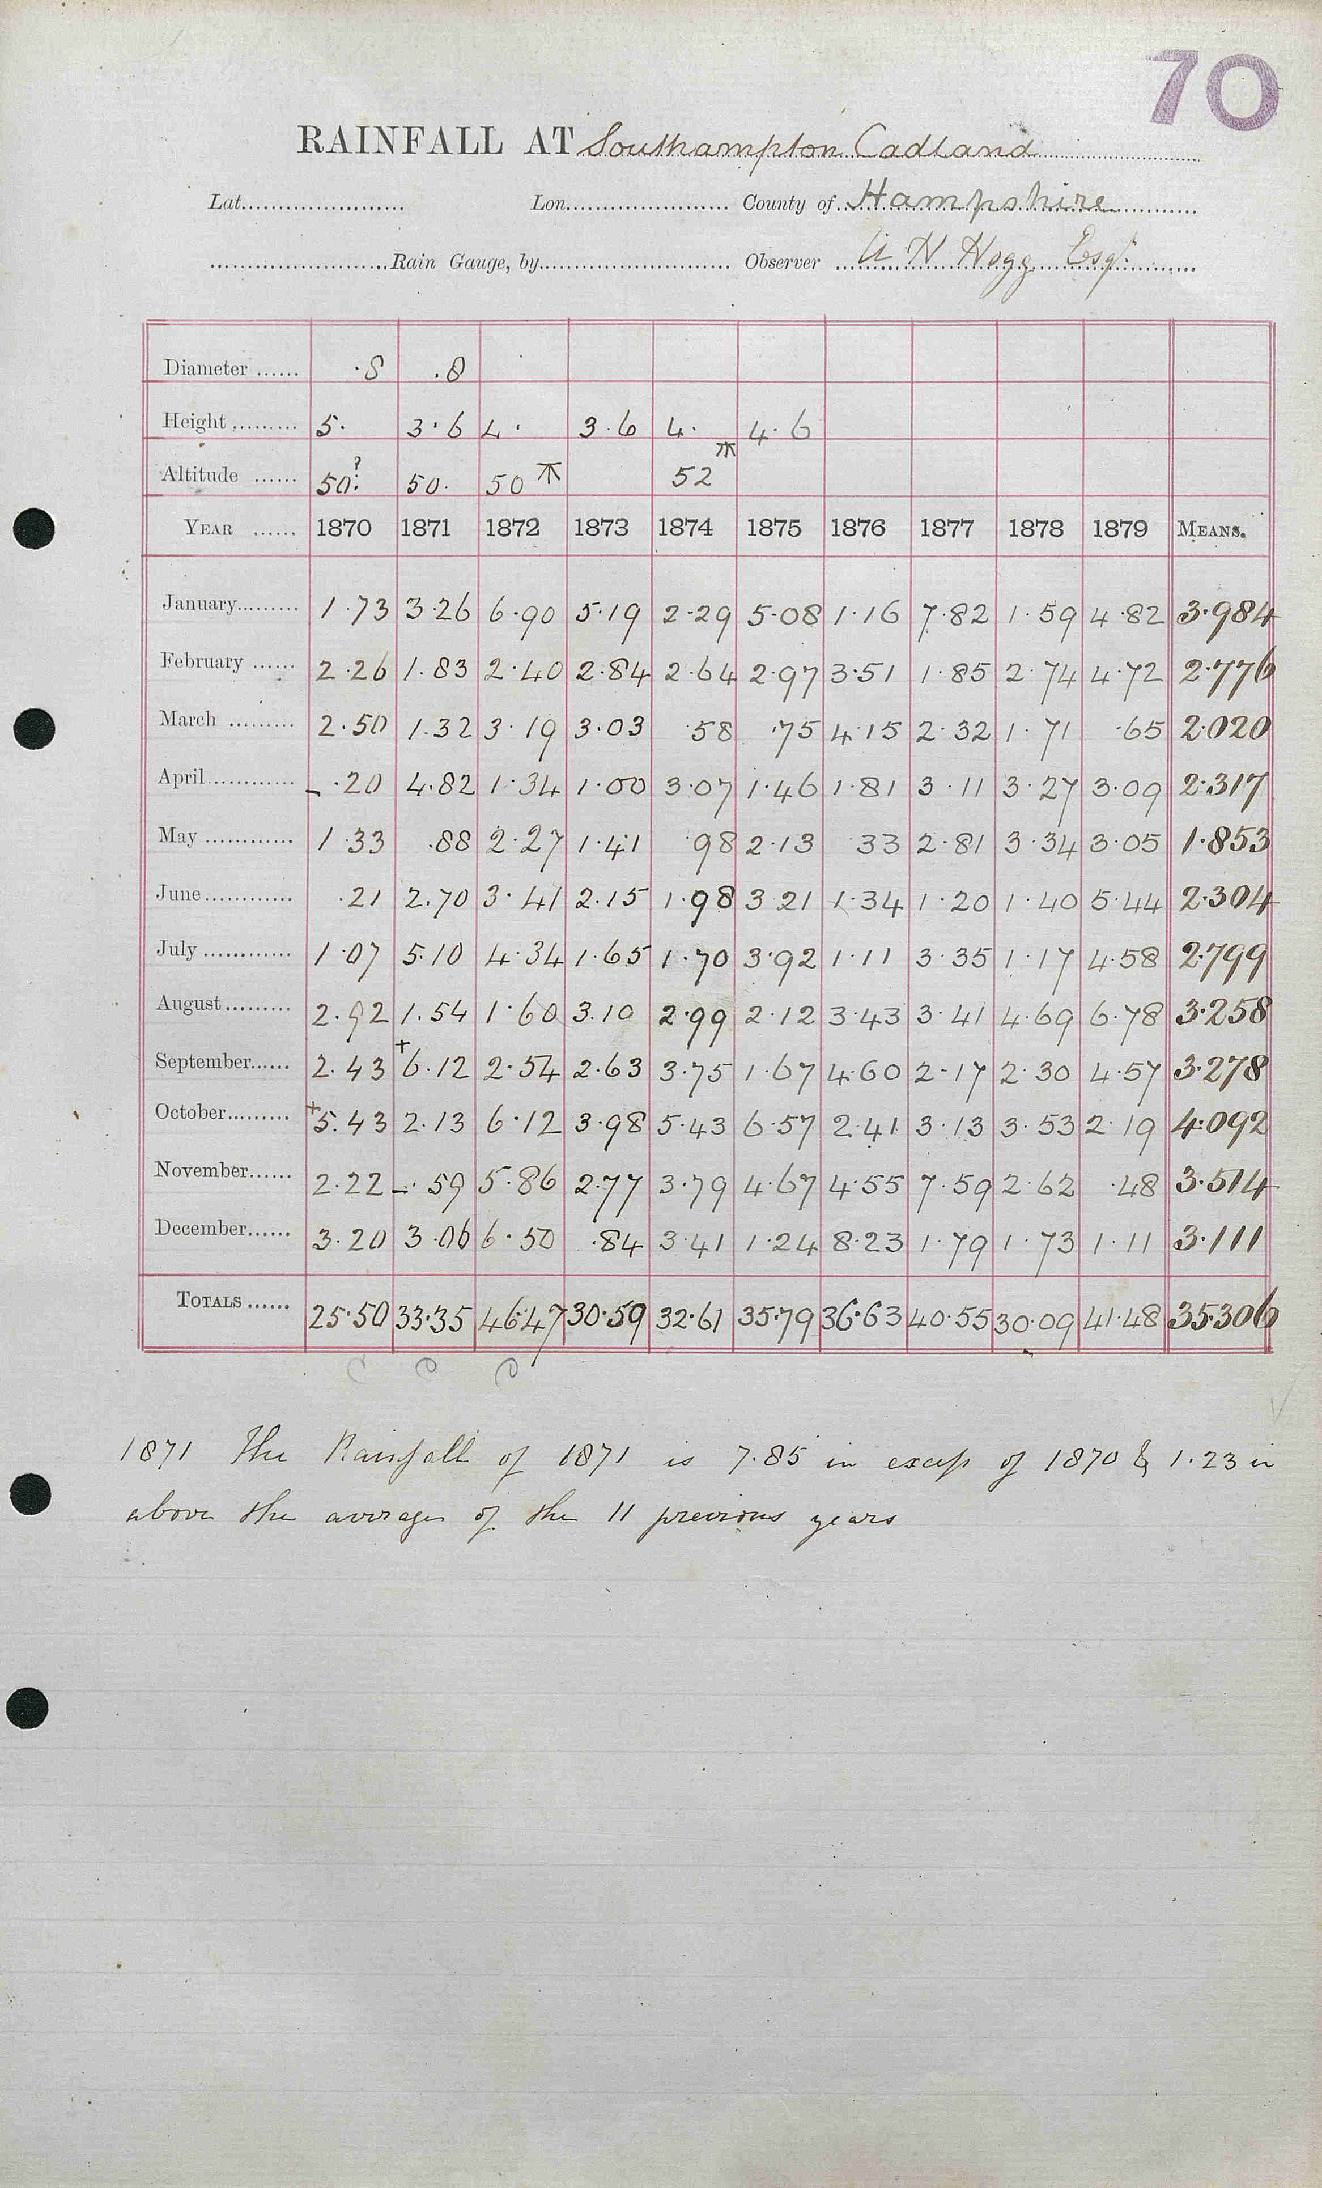 70
RAINFALL AT Southampton Cadland
Lat. Lon. County of Hampshire
Rain Gauge, by Observer A H Hogg Esqr
Diameter ...... .8 .8
Height ......... 5. 3.6 4. 3.6 4. 4.6
Altitude ...... 50.? 50. 50 52
YEAR ...... 1870 1871 1872 1873 1874 1875 1876 1877 1878 1879 MEANS.
January......... 1.73 3.26 6.90 5.19 2.29 5.08 1.16 7.82 1.59 4.82 3.984
February ...... 2.26 1.83 2.40 2.84 2.64 2.97 3.51 1.85 2.74 4.72 2.776
March ......... 2.50 1.32 3.19 3.03 .58 .75 4.15 2.32 1.71 .65 2.020
April............ - .20 4.82 1.34 1.00 3.07 1.46 1.81 3.11 3.27 3.09 2.317
May ............ 1.33 .88 2.27 1.41 .98 2.13 .33 2.81 3.34 3.05 1.853
June............ .21 2.70 3.41 2.15 1.98 3.21 1.34 1.20 1.40 5.44 2.304
July ............ 1.07 5.10 4.34 1.65 1.70 3.92 1.11 3.35 1.17 4.58 2.799
August......... 2.92 1.54 1.60 3.10 2.99 2.12 3.43 3.41 4.69 6.78 3.258
September...... 2.43 +6.12 2.54 2.63 3.75 1.67 4.60 2.17 2.30 4.57 3.278
October......... +5.43 2.13 6.12 3.98 5.43 6.57 2.41 3.13 3.53 2.19 4.092
November...... 2.22 -.59 5.86 2.77 3.79 4.67 4.55 7.59 2.62 .48 3.514
December...... 3.20 3.06 6.50 .84 3.41 1.24 8.23 1.79 1.73 1.11 3.111
TOTALS ...... 25.50 33.35 46.47 30.59 32.61 35.79 36.63 40.55 30.09 41.48 35.306
C C C
1871 The Rainfall of 1871 is 7.85 in excess of 1870 & 1.23 in
above the average of the 11 previous years